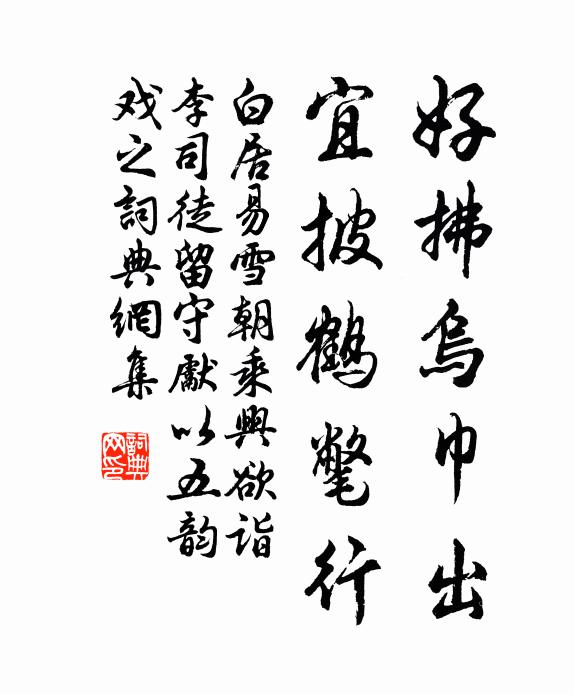 好拂烏巾出
宜披鶴氅行
白居易雪朝乘興欲詣
李司徒留守獻以五韵
戏之詞典網集
詞典網印